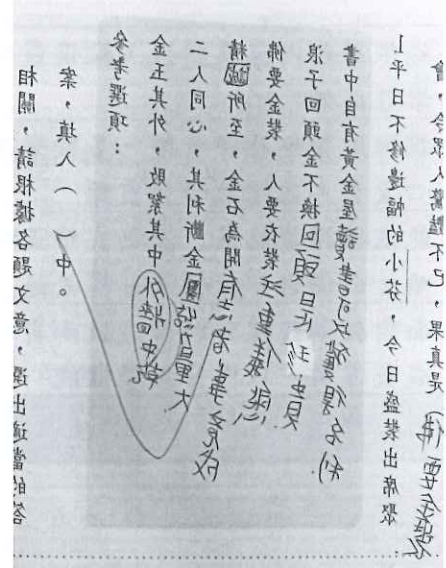 相關，請根據各題文意，選出適當的答
案，填入（　）中。
參考選項：
金玉其外，敗絮其中 外強中乾
二人同心，其利斷金 團結力量大
精誠所至，金石為開 有志者事竟成
佛要金裝，人要衣裝 注重儀態
浪子回頭金不換 回頭是珍貴
書中自有黃金屋 讀書可以獲得名利
1.平日不修邊幅的小芬，今日盛裝出席聚
會，令眾人驚豔不已，果真是（佛要金裝